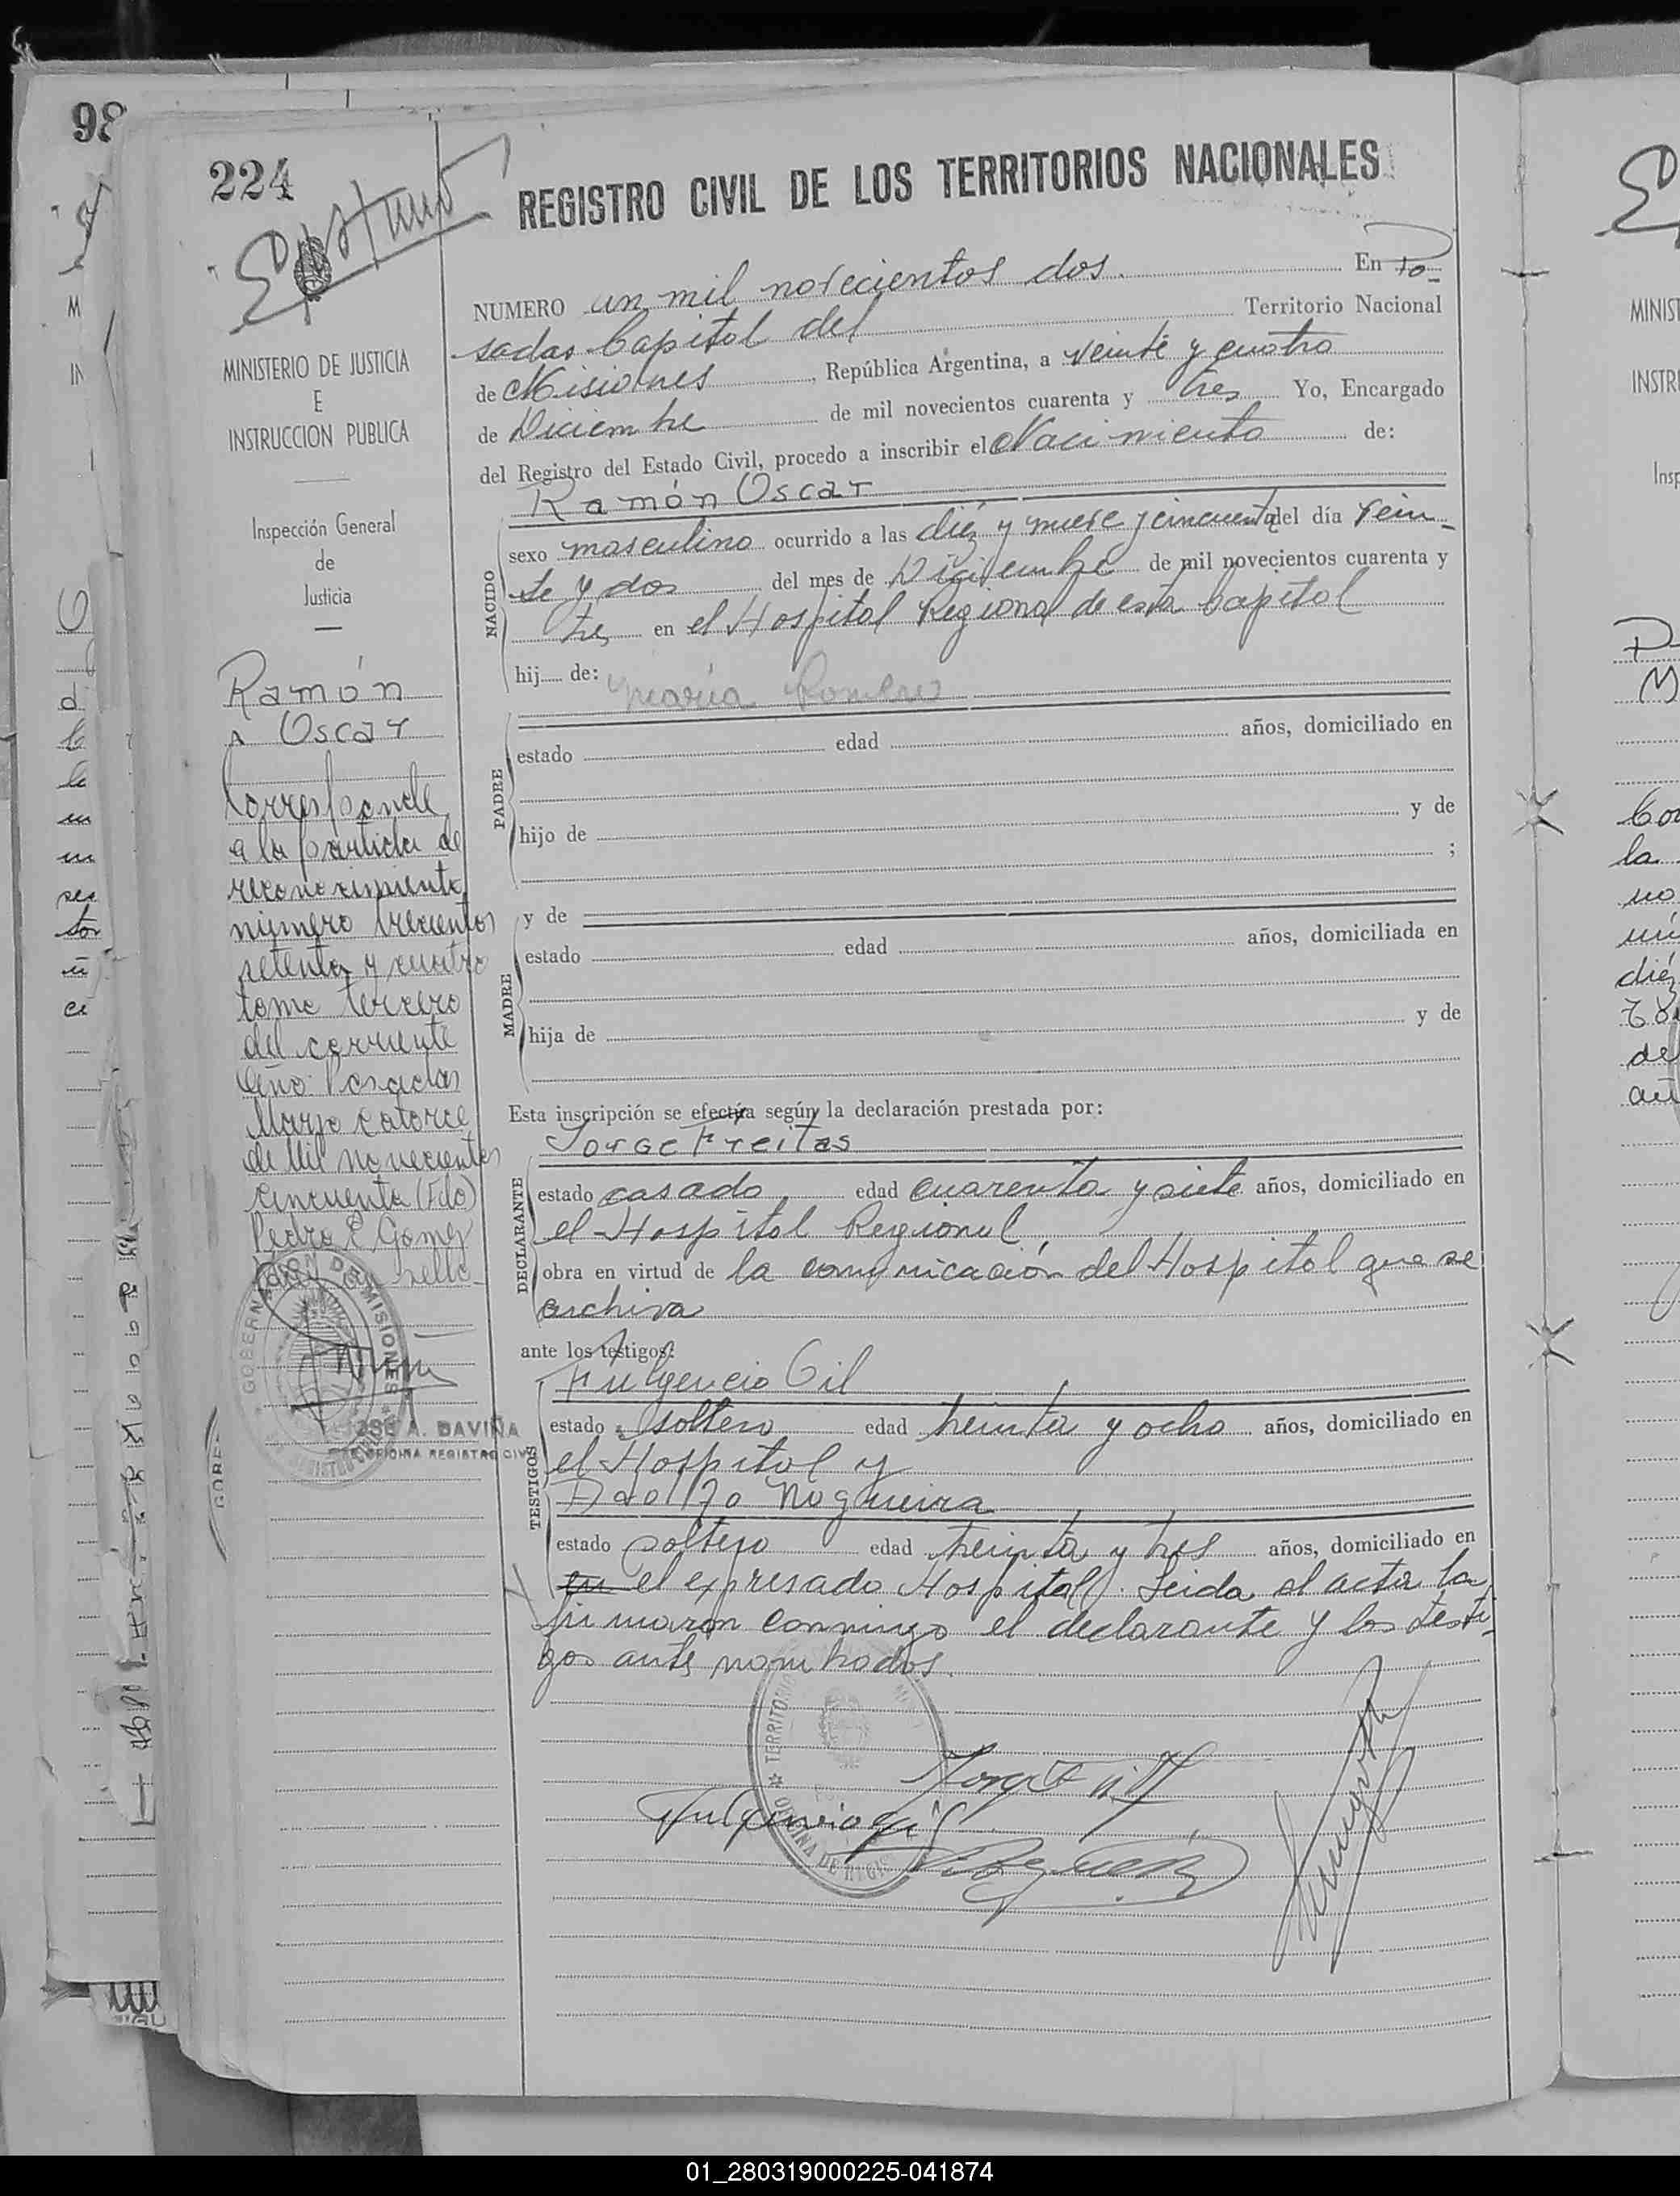 98
224
REGISTRO CIVIL DE LOS TERRITORIOS NACIONALES
MINISTERIO DE JUSTICIA
E
INSTRUCCION PUBLICA
Inspección General
de
Justicia
Ramón
Oscar
Corresponde
a la partida de
reconocimiento
número trecientos
setenta y cuatro
tomo tercero
del corriente
año. Posadas
Mayo catorce
de Mil novecientos
cincuenta (Fdo)
Pedro E. Gomez
sello
GOBERNACION DE MISIONES
JOSE A. DAVIÑA
OFICINA REGISTRO CIVIL
NUMERO un mil novecientos dos. En Po-
sadas Capital del Territorio Nacional
de Misiones, República Argentina, a veinte y cuatro
de Diciembre de mil novecientos cuarenta y tres Yo, Encargado
del Registro del Estado Civil, procedo a inscribir el Nacimiento de:
Ramón Oscar
NACIDO
sexo masculino ocurrido a las diéz y nueve y cincuenta del día vein-
te y dos del mes de Diciembre de mil novecientos cuarenta y
tres en el Hospital Regional de esta Capital
hij de: María Romero
PADRE
estado edad años, domiciliado en
hijo de y de
;
y de
MADRE
estado edad años, domiciliada en
hija de y de
Esta inscripción se efectúa según la declaración prestada por:
Jorge Freitas
DECLARANTE
estado casado edad cuarenta y siete años, domiciliado en
el Hospital Regional,
obra en virtud de la comunicación del Hospital que se
archiva
ante los testigos:
Fulgencio Gil
TESTIGOS
estado soltero edad treinta y ocho años, domiciliado en
el Hospital y
Adolfo Nogueira
estado soltero edad treinta y tres años, domiciliado en
en el expresado Hospital. Leida el acta la
firmaron conmigo el declarante y los testi-
gos ante nombrados.
TERRITORIO
OFICINA DE REGIS
Fulgencio Gil
01_280319000225-041874